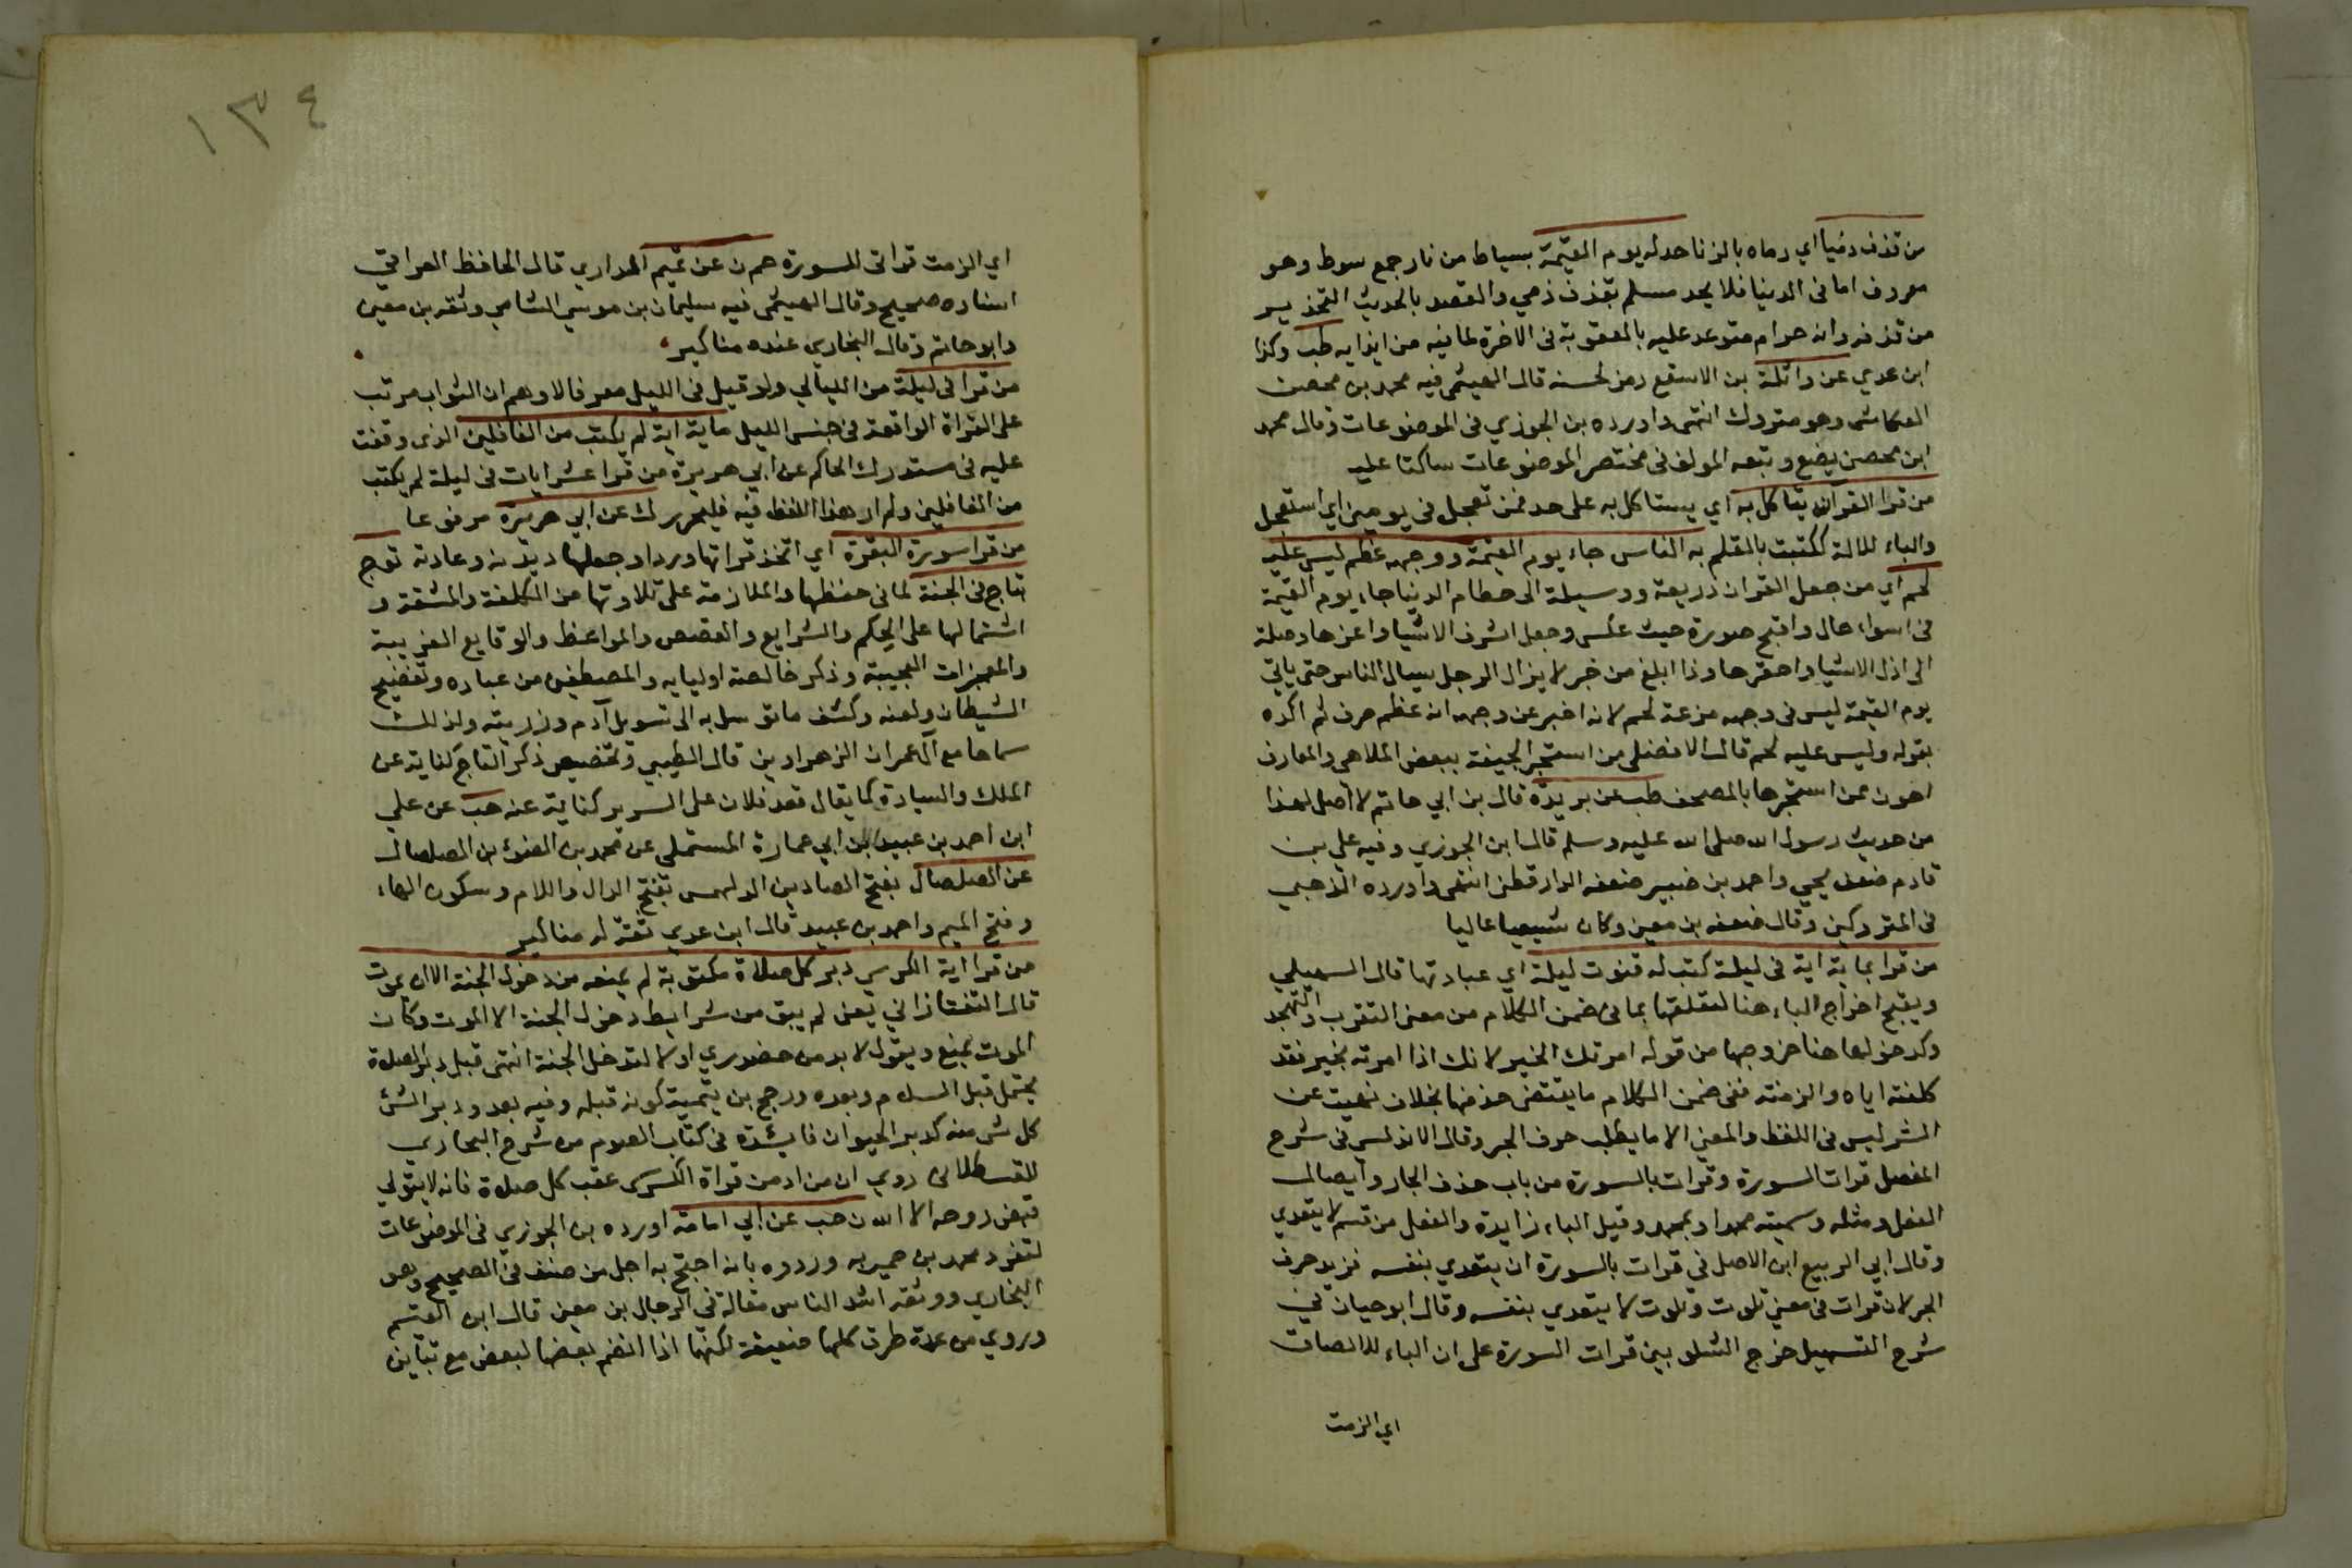 من قذف ذميا اي رماه بالزنا حد له يوم القيمة بسياط من نار جمع سوط وهو
معروف اما في الدنيا فلا يحد مسلم بقذف ذمي والقصد بالحديث التحذير
من قذفه وانه حرام متوعد عليه بالعقوبة في الاخرة لما فيه من ايذايه طب وكذا
ابن عدي عن واثلة بن الاسقع رمز لحسنه قال الهيثمى فيه محمد بن محصن
العكاشى وهو متروك انتهى واورده بن الجوزي في الموضوعات وقال محمد
ابن محصن يضع وتبعه المولف فى مختصر الموضوعات ساكتا عليه
من قرا القرآن يتاكل به اي يستاكل به على حد فمن تعجل في يومين اي استعجل
والباء للالة ككتبت بالقلم به الناس جاء يوم القيمة ووجهه عظم ليس عليه
لحم اي من جعل القران ذريعة ووسيلة الى حطام الدنيا جاء يوم القيمة
فى اسواء حال واقبح صورة حيث عكس وجعل اشرف الاشيا واعزها وصلة
الى اذل الاشيا واحقرها وذا ابلغ من خبر لا يزال الرجل يسال الناس حتى ياتي
يوم القيمة ليس فى وجهه مزعة لحم لانه اخبر عن وجهه انه عظم صرف ثم اكده
بقوله وليس عليه لحم قال الافضلى من استجر الجيفة ببعض الملاهى والمعازف
اهون ممن استجرها بالمصحف طب عن بريدة قال بن ابي حاتم لا اصل لهذا
من حديث رسول الله صلى الله عليه وسلم قال ابن الجوزي وفيه علي بن
قادم ضعفه يحيي واحمد بن خبير ضعفه الدارقطنى انتهى واورده الذهبي
فى المتروكين وقال ضعفه بن معين وكان شيعيا عاليا
من قرا بماية اية فى ليلة كتب له قنوت ليلة اي عبادتها قال السهيلي
ويقبح اخراج الباء هنا لتعلقها بما فى ضمن الكلام من معنى التقرب والتهجد
وكدخولها هنا خروجها من قوله امرتك الخير لانك اذا امرته بخير فقد
كلفته اياه والزمته ففى ضمن الكلام ما يقتضى حذفها بخلاف نهيت عن
الشر ليس فى اللفظ والمعنى الا ما يطلب حرف الجر وقال الاندلسى فى شرح
المفصل قرات السورة وقرات بالسورة من باب حذف الجار وايصال
الفعل ومثله وسميته محمدا وبمحمد وقيل الباء زايدة والفعل من قسم لا يتعدي
وقال ابي الربيع ابن الاصل في قرات بالسورة ان يتعدي بنفسه فزيد حرف
الجر لان قرات فى معنى تلوت وتلوت لا يتعدي بنفسه وقال ابوحيان في
شرح التسهيل خرج الشلو بين قرات السورة على ان الباء للالصاق
اي الزمت
١٣٤
اي الزمت قراتى السورة حم ن عن تميم الداري قال الحافظ العراقي
اسناده صحيح وقال الهيثمى فيه سليمان بن موسي الشامي وثقه بن معين
وابو حاتم وقال البخاري عنده مناكير
من قرا فى ليلة من الليالي ولو قيل فى الليل معرفا لاوهم ان الثواب مرتب
على القراة الواقعة فى جنس الليل ماية اية لم يكتب من الغافلين الذى وقفت
عليه فى مستدرك الحاكم عن ابي هريرة من قرا عشر ايات فى ليلة لم يكتب
من الغافلين ولم ار هذا اللفظ فيه فليحرر ك عن ابي هريرة مرفوعا
من قرا سورة البقرة اي اتخذ قراتها وردا وجعلها ديدنه وعادته توج
بتاج فى الجنة لما فى حفظها والملازمة على تلاوتها من الكلفة والمشقة و
اشتمالها على الحكم والشرايع والقصص والمواعظ والوقايع الغريبة
والمعجزات العجيبة وذكر خالصة اوليايه والمصطفين من عباده وتفضيح
الشيطان ولعنه وكشف ما توسل به الى تسويل آدم وذريته ولذلك
سماها مع آل عمران الزهراوين قال الطيبي وتخصيص ذكر التاج كناية عن
الملك والسيادة كما يقال قعد فلان على السرير كناية عنه هب عن علي
ابن احمد بن عبيد بن ابي عمارة المستملي عن محمد بن الضوء بن الصلصال
عن الصلصال بفتح الصادين الدلهمس بفتح الدال واللام وسكون الهاء
وفتح الميم واحمد بن عبيد قال ابن عدي ثقة له مناكير
من قرا اية الكرسي دبر كل صلاة مكتوبة لم يمنعه من دخول الجنة الا ان يموت
قال التفتازاني يعنى لم يبق من شرايط دخول الجنة الا الموت وكان
الموت يمنع ويقول لا بد من حضوري اولا لتدخل الجنة انتهى قبل دبر الصلاة
يحتمل قبل السلام وبعده ورجح بن يتمية كونه قبله وفيه بعد ودبر الشئ
كل شى منه كدبر الحيوان فايشدة فى كتاب الصوم من شرح البخاري
للقسطلانى روي ان من ادمن قراة الكرسى عقب كل صلاة فانه لا يتولي
قبض روحه الا الله ن حب عن ابي امامة اورده بن الجوزي فى الموضوعات
لتفرد محمد بن حمير به وردوه بانه احتج به اجل من صنف فى الصحيح وهو
البخاري ووثقه اشد الناس مقالة فى الرجال بن معين قال ابن القيم
وروي من عدة طرق كلها ضعيفة لكنها اذا انضم بعضها لبعض مع تباين